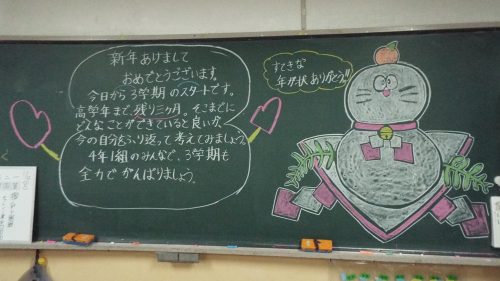 新年あけまして
おめでとうございます。
今日から3学期のスタートです。
高学年まで、残り三ヶ月。そこまでに
どんなことができていると良いか、
今の自分をふり返って考えてみましょう。
4年1組のみんなで、3学期も
全力でがんばりましょう。
すてきな
年賀状ありがとう!!